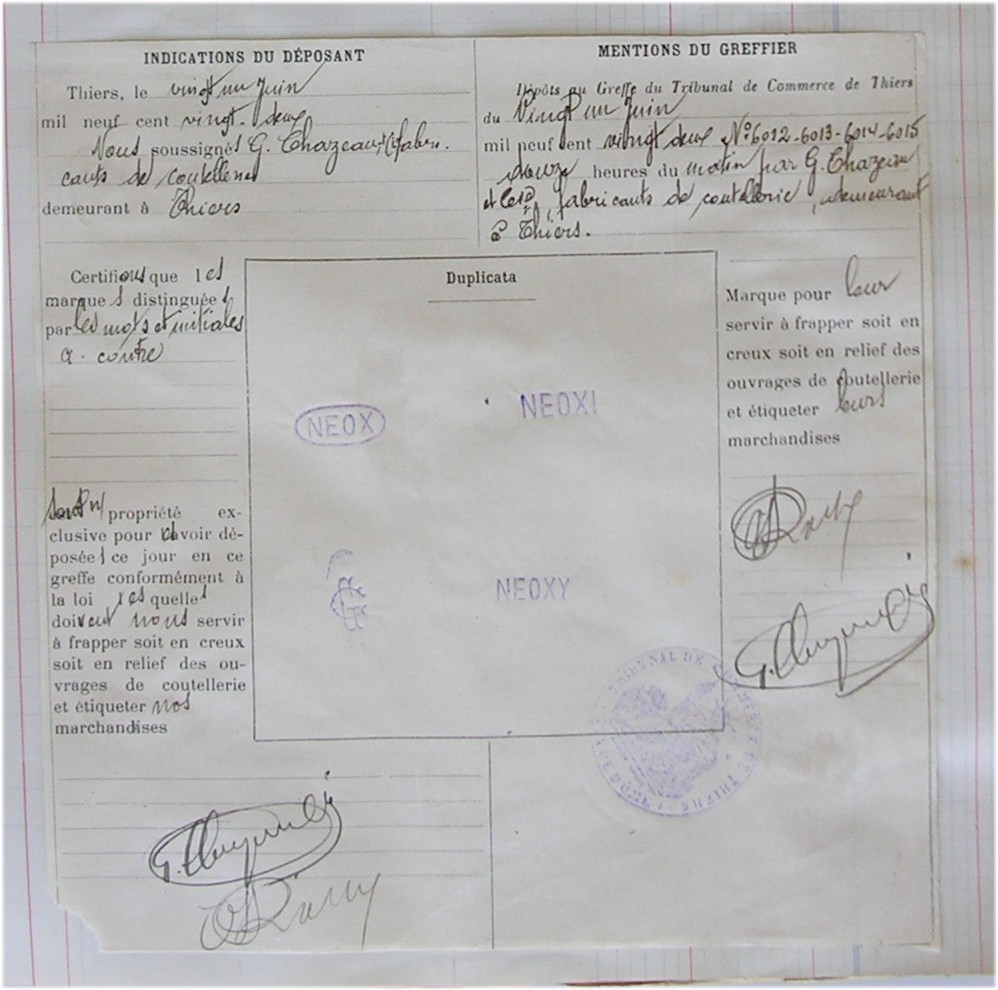 INDICATIONS DU DÉPOSANT
Thiers, le vingt un Juin
mil neuf cent vingt-deux
Nous soussignés G. Chazeau & Cie fabri-
cants de coutellerie
demeurant à Thiers
MENTIONS DU GREFFIER
Dépôts au Greffe du Tribunal de Commerce de Thiers
du Vingt un Juin
mil neuf cent vingt deux Nos 6012-6013-6014-6015
heures du matin par G. Chazeau
et Cie, fabricants de coutellerie, demeurant
à Thiers.
Certifions que les
marques distinguées
par les mots et initiales
ci-contre
sont n/ propriété ex-
clusive pour avoir dé-
posées ce jour en ce
greffe conformément à
la loi lesquelles
doivent nous servir
à frapper soit en creux
soit en relief des ou-
vrages de coutellerie
et étiqueter nos
marchandises
Duplicata
NEOX
NEOXI
NEOXY
Marque pour leur
servir à frapper soit en
creux soit en relief des
ouvrages de coutellerie
et étiqueter leurs
marchandises
TRIBUNAL DE COMMERCE DE THIERS